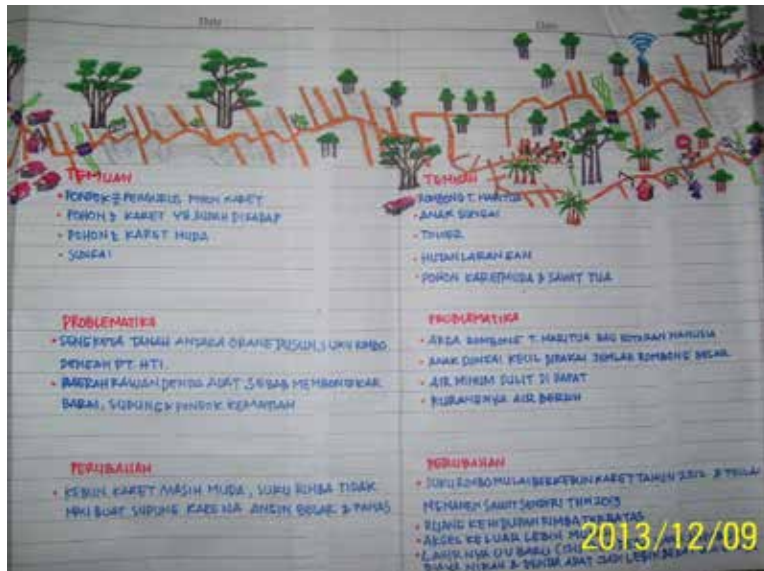 Date
TEMUAN
• PONDOK2 PENGURUS POHON KARET
• POHON2 KARET YG SUDAH DISADAP
• POHON2 KARET MUDA
• SUNGAI
PROBLEMATIKA
• SENGKETA TANAH ANTARA ORANG DUSUN, SUKU RIMBO
DENGAN PT. HTI.
• DAERAH RAWAN DENDA ADAT SEBAB MEMBONGKAR
BABAL, SUDUNG & PONDOK KEMATIAN
PERUBAHAN
• KEBUN KARET MASIH MUDA, SUKU RIMBA TIDAK
MAU BUAT SUDUNG KARENA ANGIN BESAR & PANAS
Date
TEMUAN
ROMBONG T. MARITUA
• ANAK SUNGAI
• TOWER
• HUTAN LARANGAN
• POHON KARET MUDA & SAWIT TUA
PROBLEMATIKA
• AREA ROMBONG T. MARITUA BAU KOTORAN MANUSIA
• ANAK SUNGAI KECIL DIPAKAI JUMLAH ROMBONG BESAR
• AIR MINUM SULIT DI DAPAT
• KURANGNYA AIR BERSIH
PERUBAHAN
• SUKU RIMBO MULAI BERKEBUN KARET TAHUN 2012 &
MENANEM SAWIT SENDIRI THN 2013
• RUANG KEHIDUPAN RIMBA TERBATAS
• AKSES KELUAR LEBIH
• LAHIRNYA UU BARU
BIAYA NIKAH & DENDA ADAT JADI LEBIH
2013/12/09